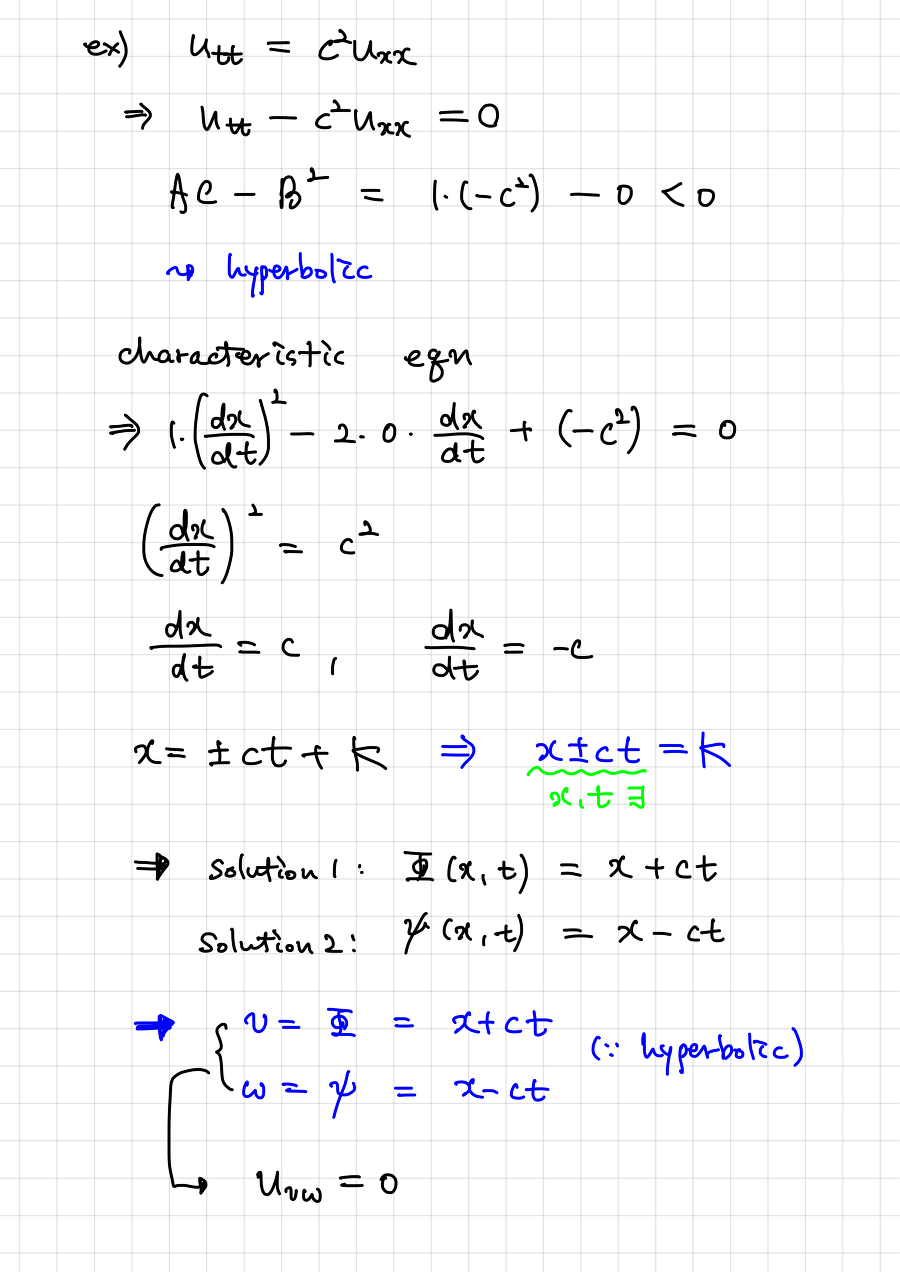 ex) u_tt = c²u_xx
⇒ u_tt − c²u_xx = 0
AC − B² = 1·(−c²) − 0 < 0
⤳ hyperbolic
characteristic eqn
⇒ 1·(dx/dt)² − 2·0·dx/dt + (−c²) = 0
(dx/dt)² = c²
dx/dt = c, dx/dt = −c
x = ±ct + k ⇒ x±ct = k
x, t ∃
⇒ Solution 1: Φ(x, t) = x + ct
Solution 2: ψ(x, t) = x − ct
⇒ { v = Φ = x+ct (∵ hyperbolic)
w = ψ = x−ct
→ u_vw = 0